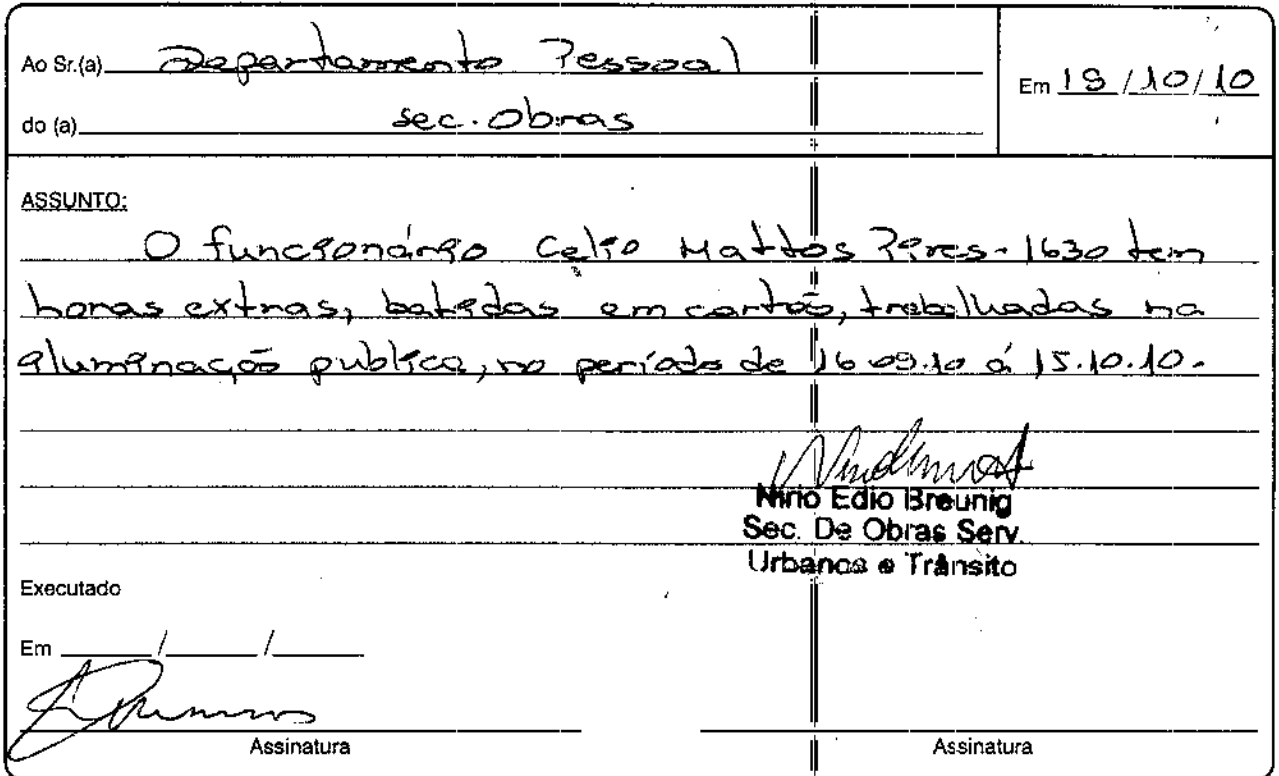 Ao Sr.(a) Departamento Pessoal
Em 19/10/10
do (a) Sec. Obras
ASSUNTO:
O funcionário Celio Mattos Pires - 1630 tem
horas extras, batidas em cartão, trabalhadas na
iluminação publica, no período de 16.09.10 á 15.10.10.
Nirio Edio Breunig
Sec. De Obras Serv.
Urbanos e Trânsito
Executado
Em ____/____/____
Assinatura
Assinatura